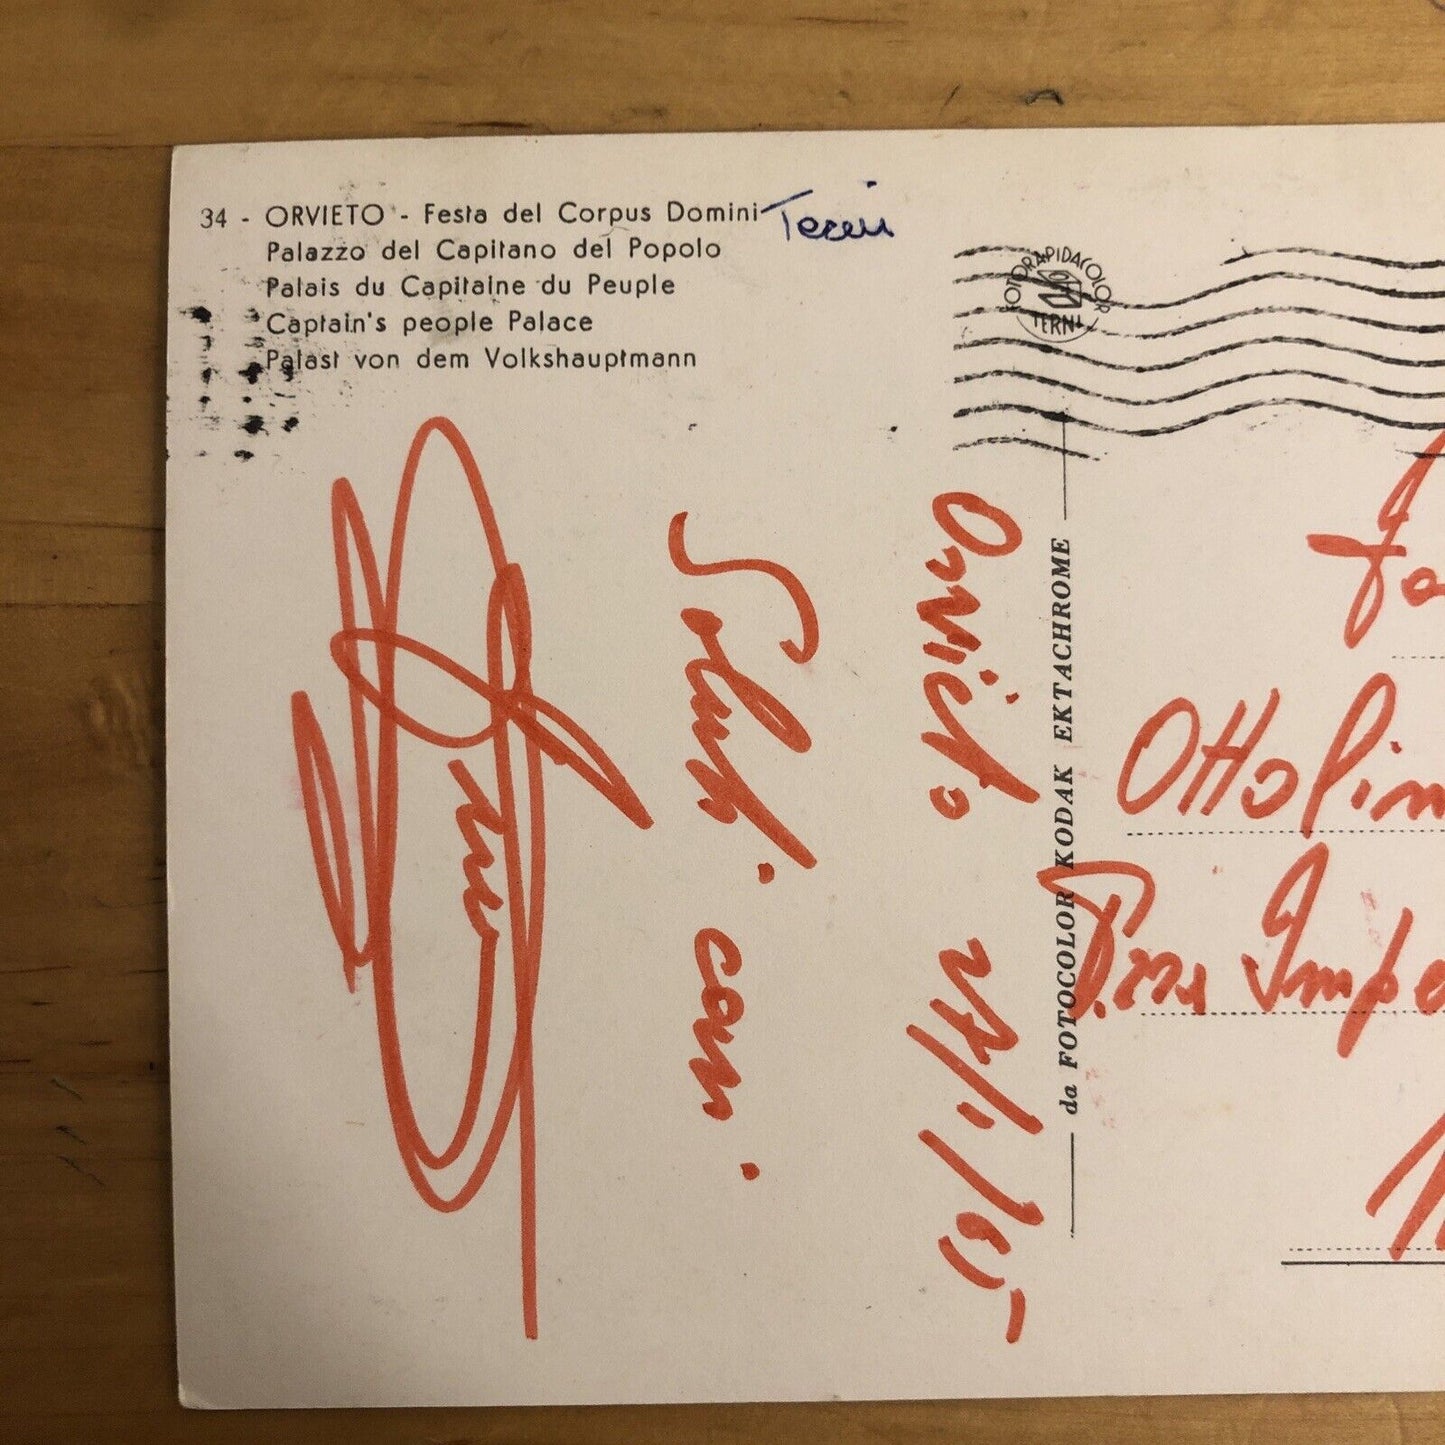 34 - ORVIETO - Festa del Corpus Domini Terni
Palazzo del Capitano del Popolo
Palais du Capitaine du Peuple
Captain's people Palace
Palast von dem Volkshauptmann
FOTORAPIDACOLOR
TERNI
Orvieto
Saluti cari.
da FOTOCOLOR KODAK EKTACHROME
Fa
Ottolin
P.zza Impe